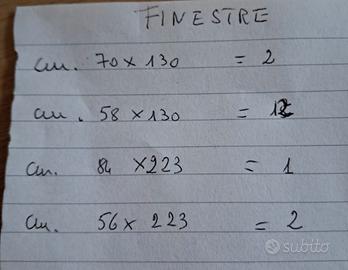 FINESTRE
cm. 70 x 130 = 2
cm. 58 x 130 =
cm. 84 x 223 = 1
cm. 56 x 223 = 2
subito